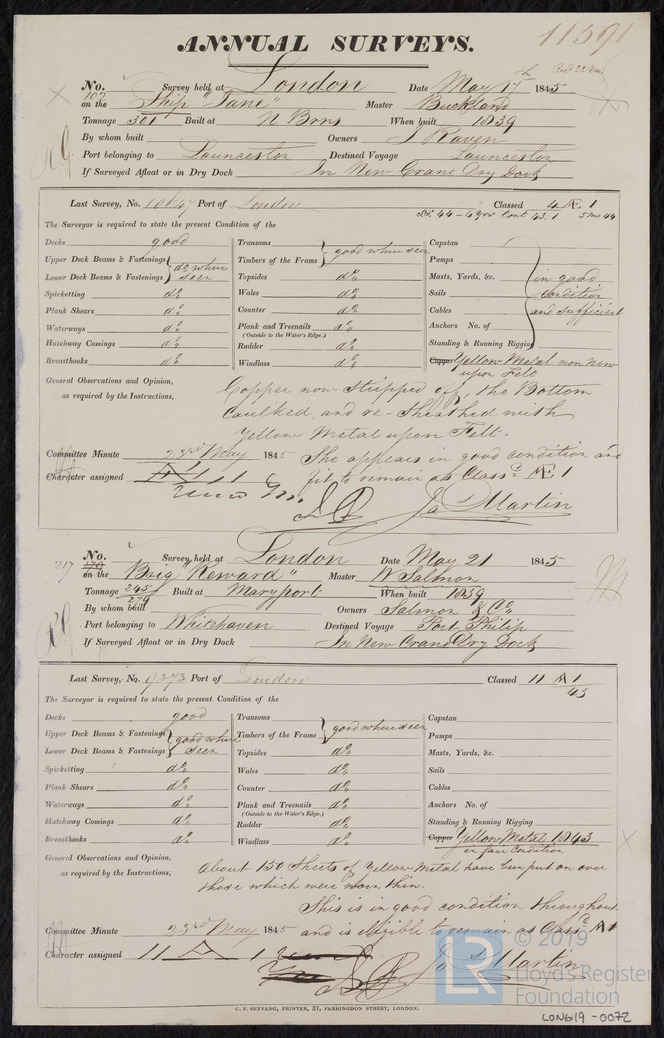 11591
ANNUAL SURVEYS.
No. 102 Survey held at London Date May 17th 1845
on the Ship "Jane" Master Buckland
Tonnage 301 Built at N Brns When built 1839
By whom built Owners J Raven
Port belonging to Launceston Destined Voyage Launceston
If Surveyed Afloat or in Dry Dock In New Crane Dry Dock
Last Survey, No. 10647 Port of London Classed 4 Æ 1
The Surveyor is required to state the present Condition of the
Decks good
Upper Deck Beams & Fastenings
Lower Deck Beams & Fastenings } do where seen
Spirketting do
Plank Shears do
Waterways do
Hatchway Comings do
Breasthooks do
Transoms
Timbers of the Frame } good where seen
Topsides do
Wales do
Counter do
Plank and Treenails do
(Outside to the Water's Edge.)
Rudder do
Windlass do
Capstan
Pumps
Masts, Yards, &c.
Sails
Cables
Anchors No. of
Standing & Running Rigging } in good condition and sufficient
Copper Yellow Metal now New
upon Felt
General Observations and Opinion,
as required by the Instructions,
Copper now stripped off, the Bottom
caulked, and re-sheathed with
Yellow Metal upon Felt.
She appears in good condition and
fit to remain as Classd Æ 1
Committee Minute 23rd May 1845
Character assigned
Ja Martin
217
No. 170 Survey held at London Date May 21 1845
on the Brig "Reward" Master W Salmon
Tonnage 245 279 Built at Maryport When built 1839
By whom built Owners Salmon & Co
Port belonging to Whitehaven Destined Voyage Port Philip
If Surveyed Afloat or in Dry Dock In New Crane Dry Dock
Last Survey, No. 9373 Port of London Classed 11 A 1
43
The Surveyor is required to state the present Condition of the
Decks good
Upper Deck Beams & Fastenings
Lower Deck Beams & Fastenings } good where seen
Spirketting do
Plank Shears do
Waterways do
Hatchway Comings do
Breasthooks do
Transoms
Timbers of the Frame } good where seen
Topsides do
Wales do
Counter do
Plank and Treenails do
(Outside to the Water's Edge.)
Rudder do
Windlass do
Capstan
Pumps
Masts, Yards, &c.
Sails
Cables
Anchors No. of
Standing & Running Rigging
Copper Yellow Metal 1843
in fair condition
General Observations and Opinion,
as required by the Instructions,
About 150 Sheets of Yellow Metal have been put on over
those which were worn thin.
This is in good condition throughout
and is eligible to remain as Classd A 1
Committee Minute 23rd May 1845
Character assigned 11 A 1
Ja Martin
C. F. SEYFANG, PRINTER, 57, FARRINGDON STREET, LONDON.
© 2019
LR
Lloyd's Register
Foundation
LON619-0072